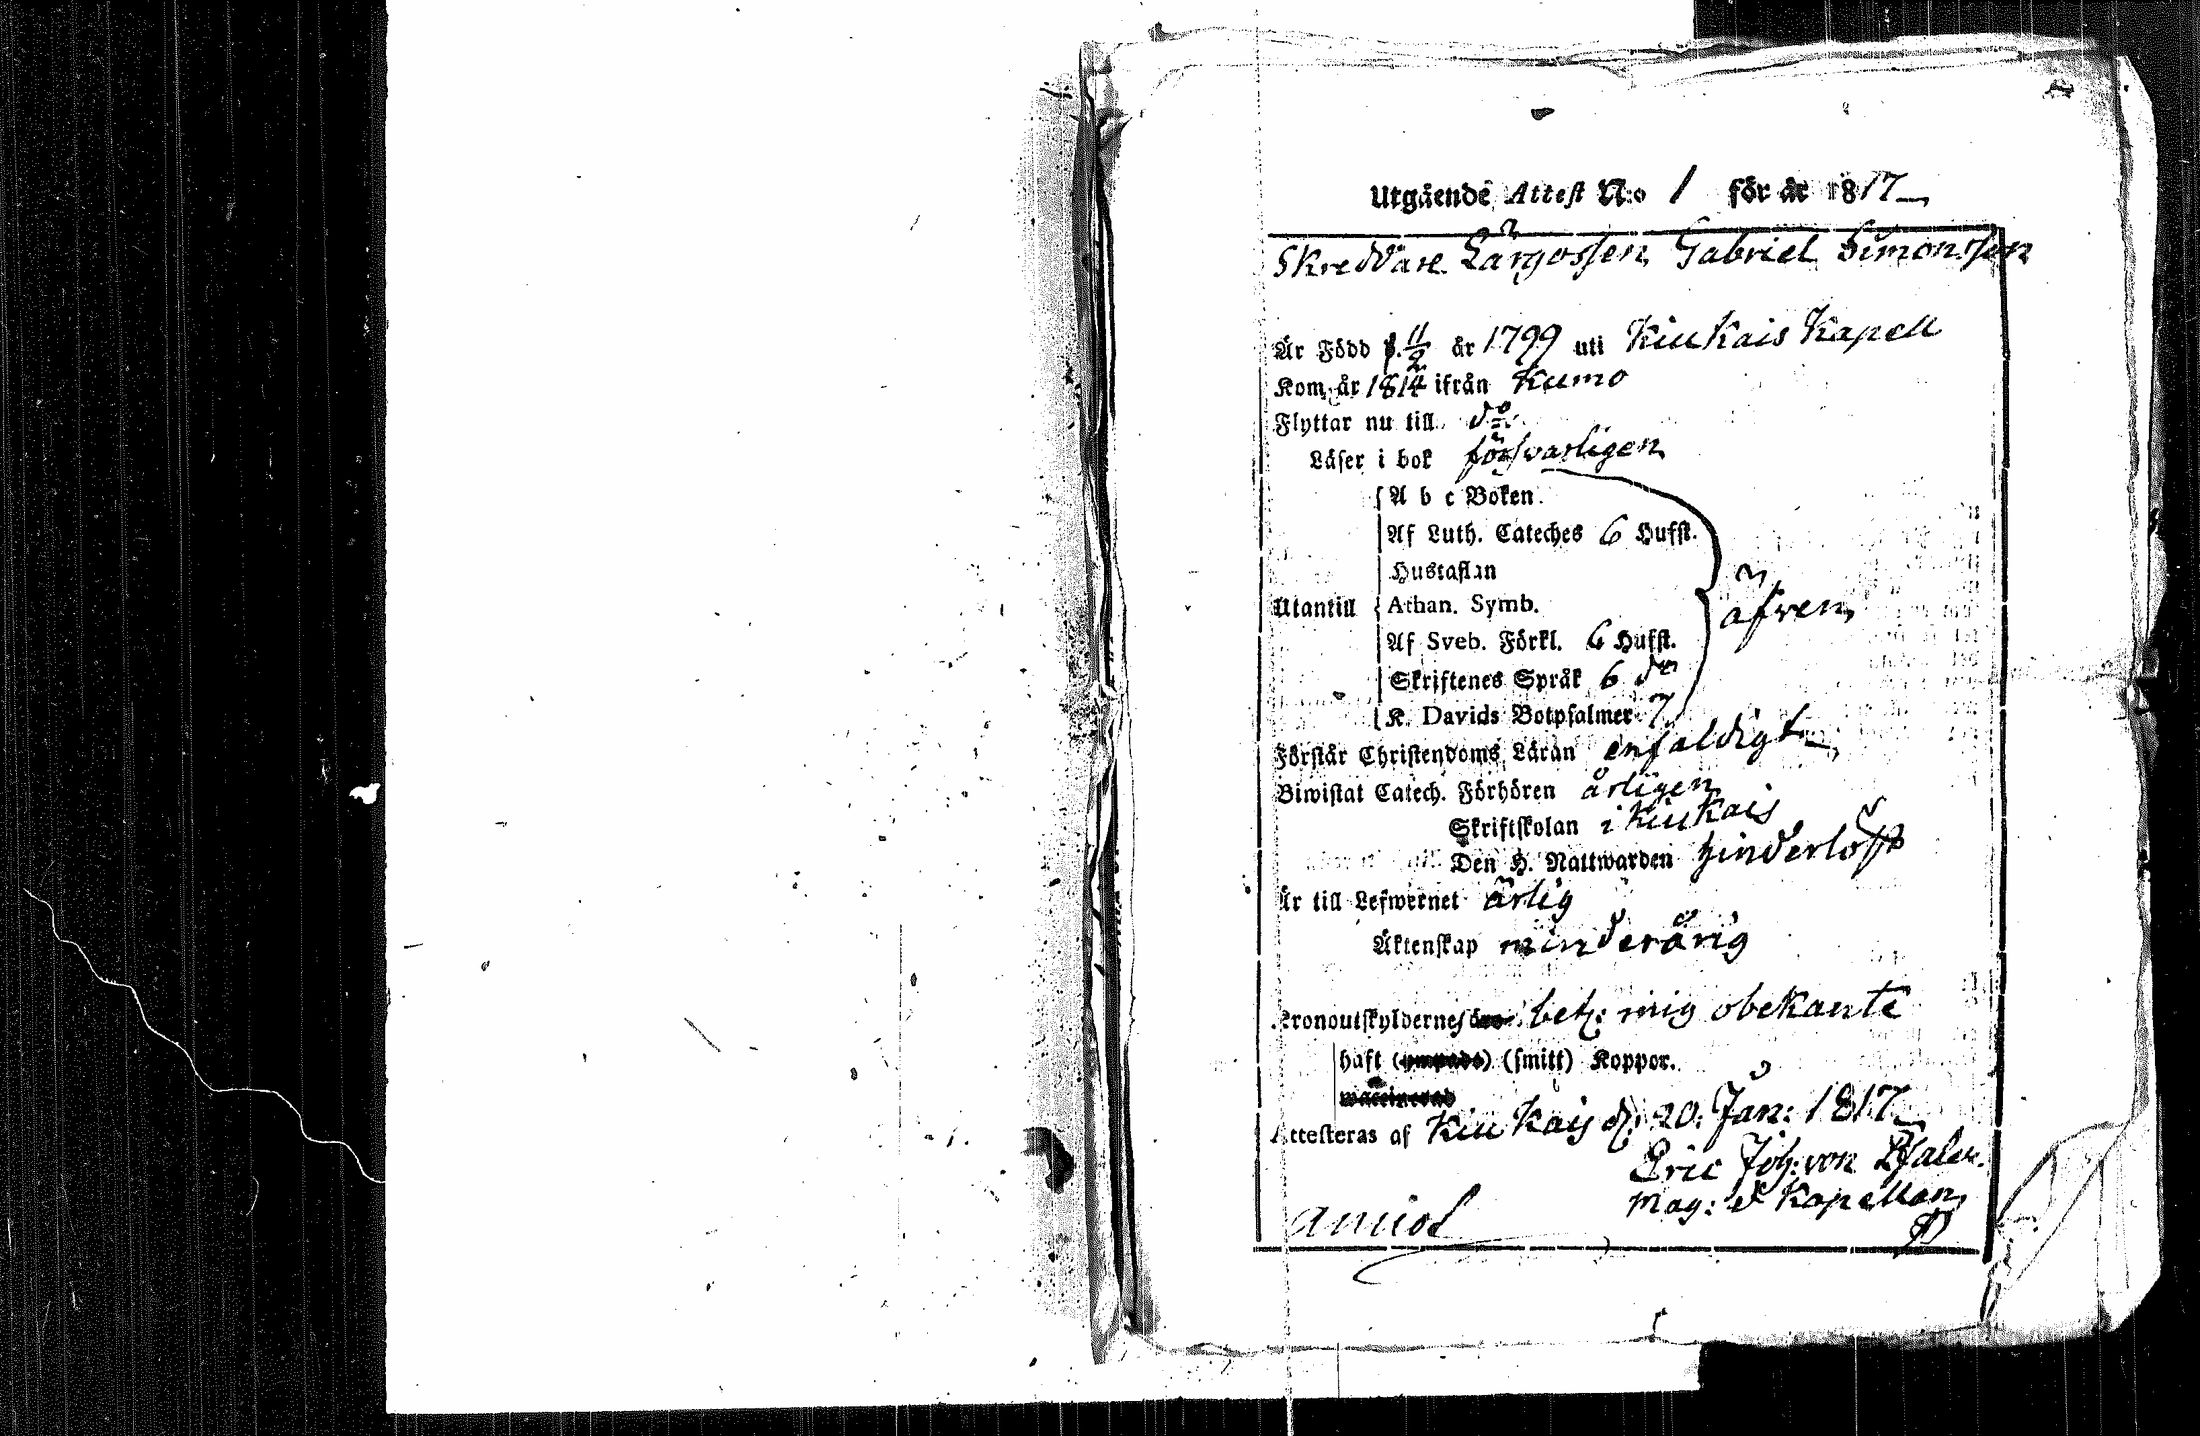 Utgående Attest N:o 1 för år 1817
Skreddare Lärgossen Gabriel Simonsson
Är Född d. 11/2 år 1799 uti Kiukais Kapell
Kom år 1814 ifrån Kumo
Flyttar nu till do:
Läser i bok försvarligen
A b c Boken.
Af Luth. Cateches 6 Hufst.
Hustaflan
Utantill Athan. Symb. äfven
Af Sveb. Förkl. 6 Hufst.
Skriftenes Språk 6 do
K. Davids Botpsalmer 7
Förstår Christendoms Läran enfaldigt
Biwistat Catech. Förhören årligen
Skriftskolan i Kiukais
Den H. Nattwarden hinderlöst
Är till Lefwernet ärlig
Äktenskap minderårig
Kronoutskyldernes bet: mig obekante
haft (smitt) Koppor.
Attesteras af Kiukais d: 20: Jan: 1817
Eric Joh: von Pfaler.
Mag: & Kapellan